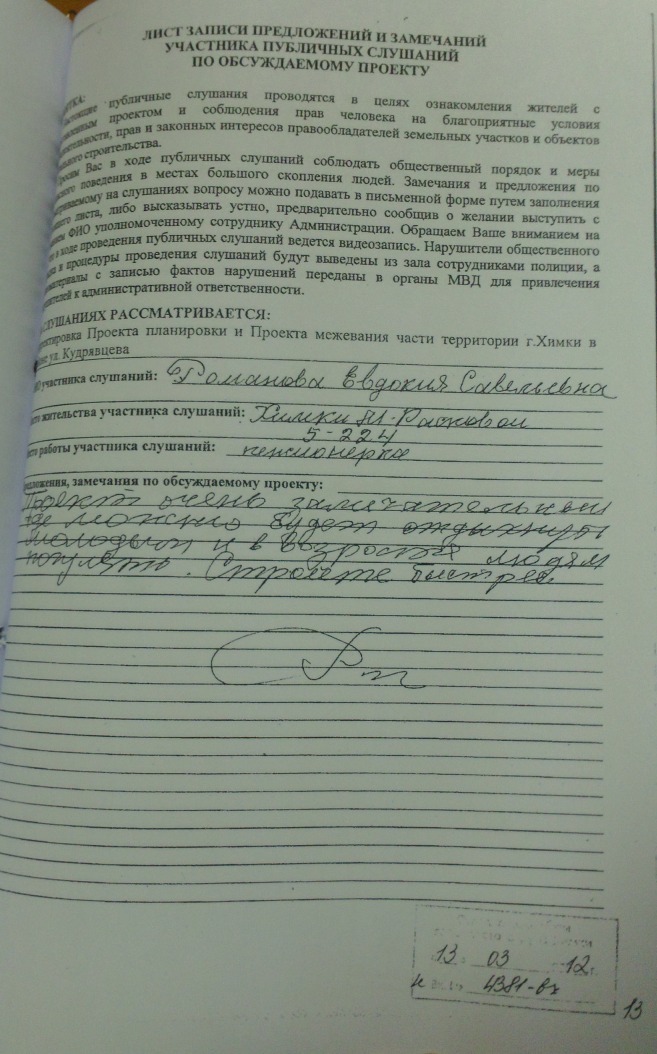 ЛИСТ ЗАПИСИ ПРЕДЛОЖЕНИЙ И ЗАМЕЧАНИЙ
УЧАСТНИКА ПУБЛИЧНЫХ СЛУШАНИЙ
ПО ОБСУЖДАЕМОМУ ПРОЕКТУ
ТКА:
стоящие публичные слушания проводятся в целях ознакомления жителей с
вленным проектом и соблюдения прав человека на благоприятные условия
тельности, прав и законных интересов правообладателей земельных участков и объектов
ного строительства.
росим Вас в ходе публичных слушаний соблюдать общественный порядок и меры
сного поведения в местах большого скопления людей. Замечания и предложения по
триваемому на слушаниях вопросу можно подавать в письменной форме путем заполнения
щего листа, либо высказывать устно, предварительно сообщив о желании выступить с
ем ФИО уполномоченному сотруднику Администрации. Обращаем Ваше вниманием на
в ходе проведения публичных слушаний ведется видеозапись. Нарушители общественного
ка и процедуры проведения слушаний будут выведены из зала сотрудниками полиции, а
материалы с записью фактов нарушений переданы в органы МВД для привлечения
ителей к административной ответственности.
СЛУШАНИЯХ РАССМАТРИВАЕТСЯ:
ректировка Проекта планировки и Проекта межевания части территории г.Химки в
не ул. Кудрявцева
ИО участника слушаний: Романова Евдокия Савельевна
сто жительства участника слушаний: Химки М-Расковой
5-224
сто работы участника слушаний: пенсионерка
редложения, замечания по обсуждаемому проекту:
Проект очень замечательный
где можно будет отдыхнуть
молодым и в возросте людям
погулять. Строите быстрей
13 03 12 г.
4381-вх
13